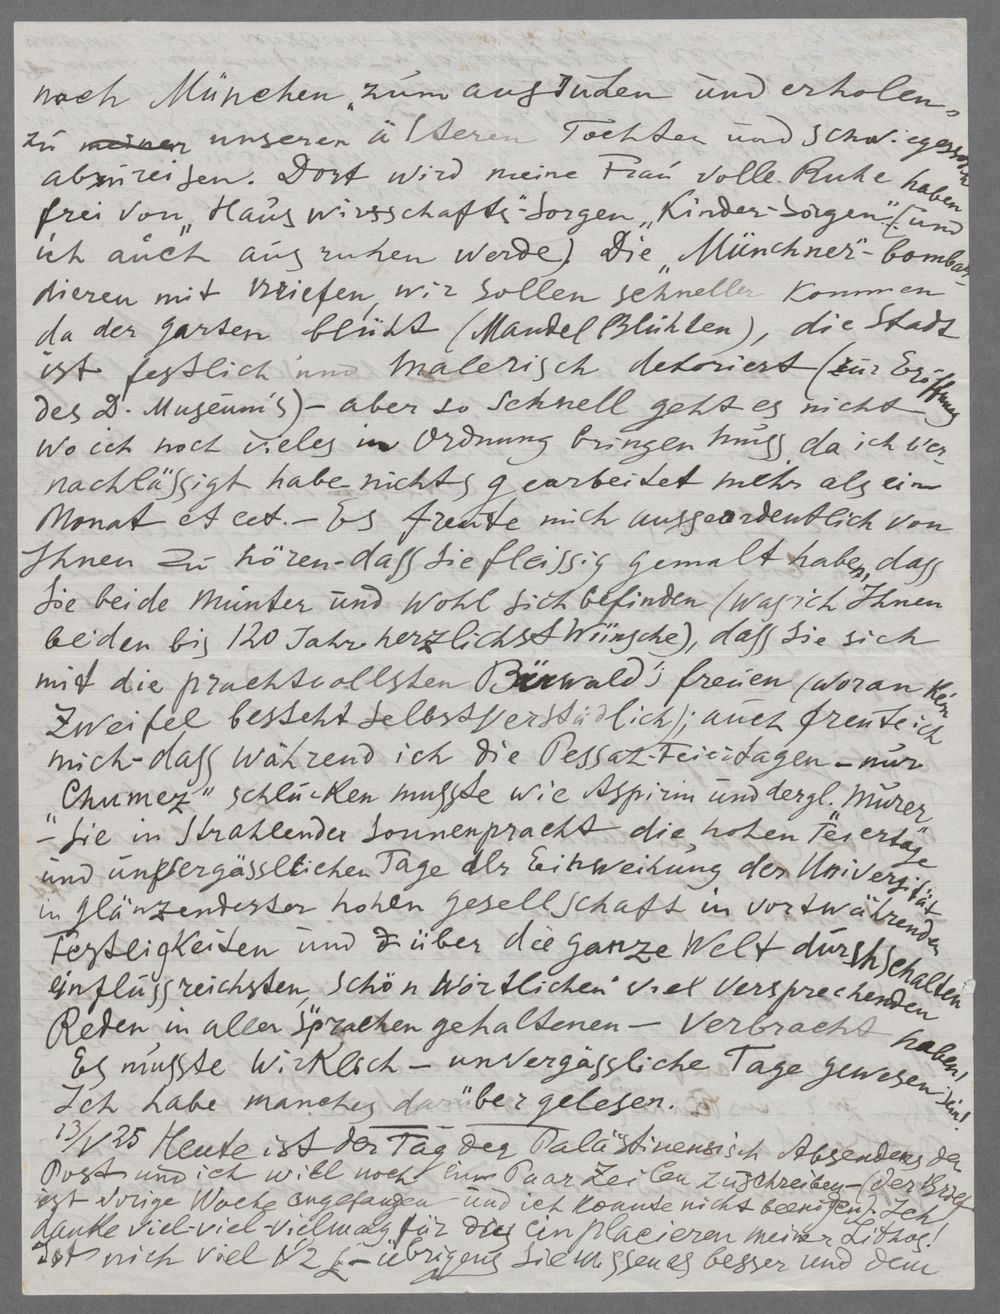 nach München "zum ausruhen und erholen"
zu meiner unseren älteren Tochter und Schwiegersohn
abzureisen. Dort wird meine Frau volle Ruhe haben
frei von "Hauswirtschafts"-Sorgen "Kinder-Sorgen" (und
ich auch ausruhen werde) Die "Münchner"-bombar-
dieren mit Briefen, wir sollen schneller kommen
da der Garten blüht (Mandel Blühten), die Stadt
ist festlich und malerisch dekoriert (zur Eröffnung
des D. Museums) - aber so schnell geht es nicht
wo ich noch vieles in Ordnung bringen muss, da ich ver-
nachlässigt habe nichts gearbeitet mehr als ein
Monat et cet. - Es freute mich ausserordentlich von
Ihnen zu hören - dass Sie fleissig gemalt haben, dass
Sie beide munter und wohl sich befinden (was ich Ihnen
beiden bis 120 Jahr herzlichst wünsche), dass Sie sich
mit die prachtvollsten Bärwald's freuen (woran kein
Zweifel besteht selbstverständlich); auch freute ich
mich - dass während ich die Pessaz-Feiertagen - nur
"Chumez" schlucken musste wie Aspirin und dergl.
- Sie in strahlender Sonnenpracht die hohen Feiertage
und unvergässlichen Tage der Einweihung der Universität
in glänzendster hohen Gesellschaft in vortwährenden
Festligkeiten und über die ganze Welt durchschalten
einflussreichsten, schön wörtlichen viel versprechenden
Reden in aller Sprachen gehaltenen - verbracht haben!
Es müsste wirklich - unvergässliche Tage gewesen sein!
Ich habe manches darüber gelesen.
13/V 25 Heute ist der Tag des Palästinensisch Absendens der
Post und ich will noch ein Paar Zeilen zuschreiben - (der Brief
ist vorige Woche angefangen und ich konnte nicht beendigen). Ich
danke viel-viel-vielmals für das einplacieren meiner Lithos!
Ist nich viel 2 £ - übrigens Sie wissen es besser und dem